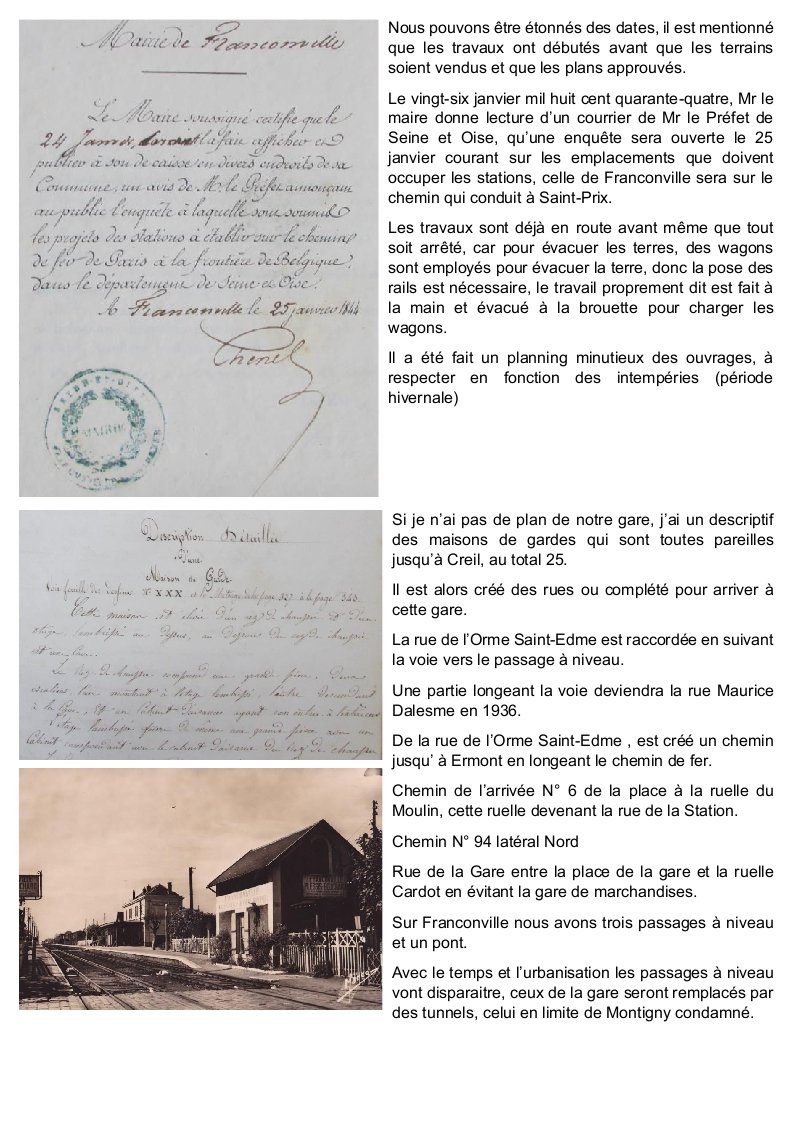 Mairie de Franconville
Le Maire soussigné certifie que le
24 Janvier, courant il a fait afficher et
publier à son de caisse en divers endroits de sa
Commune, un avis de M. le Préfet annonçant
au public l'enquête à laquelle sont soumis
les projets des stations à établir sur le chemin
de fer de Paris à la frontière de Belgique,
dans le département de Seine et Oise.
A Franconville le 25 janvier 1844
MAIRIE
Nous pouvons être étonnés des dates, il est mentionné
que les travaux ont débutés avant que les terrains
soient vendus et que les plans approuvés.
Le vingt-six janvier mil huit cent quarante-quatre, Mr le
maire donne lecture d’un courrier de Mr le Préfet de
Seine et Oise, qu’une enquête sera ouverte le 25
janvier courant sur les emplacements que doivent
occuper les stations, celle de Franconville sera sur le
chemin qui conduit à Saint-Prix.
Les travaux sont déjà en route avant même que tout
soit arrêté, car pour évacuer les terres, des wagons
sont employés pour évacuer la terre, donc la pose des
rails est nécessaire, le travail proprement dit est fait à
la main et évacué à la brouette pour charger les
wagons.
Il a été fait un planning minutieux des ouvrages, à
respecter en fonction des intempéries (période
hivernale)
Description Détaillée
d'une
Maison de Garde
Voir feuille des dessins N° XXX et le Métrage de la page 327 à la page 343
Cette maison est élevée d'un rez de chaussée et d'un
étage lambrissé au dessus, au dessous du rez de chaussée
est une cave.
Le Rez de chaussée comprend une grande pièce, deux
escaliers l'un montant à l'étage lambrissé, l'autre descendant
à la cave, et un cabinet d'aisances ayant son entrée à l'extérieur
l'étage lambrissé forme de même une grande pièce avec un
Cabinet correspondant avec le cabinet d'aisance du rez de chaussée
Si je n’ai pas de plan de notre gare, j’ai un descriptif
des maisons de gardes qui sont toutes pareilles
jusqu’à Creil, au total 25.
Il est alors créé des rues ou complété pour arriver à
cette gare.
La rue de l’Orme Saint-Edme est raccordée en suivant
la voie vers le passage à niveau.
Une partie longeant la voie deviendra la rue Maurice
Dalesme en 1936.
De la rue de l’Orme Saint-Edme , est créé un chemin
jusqu’ à Ermont en longeant le chemin de fer.
Chemin de l’arrivée N° 6 de la place à la ruelle du
Moulin, cette ruelle devenant la rue de la Station.
Chemin N° 94 latéral Nord
Rue de la Gare entre la place de la gare et la ruelle
Cardot en évitant la gare de marchandises.
Sur Franconville nous avons trois passages à niveau
et un pont.
Avec le temps et l’urbanisation les passages à niveau
vont disparaitre, ceux de la gare seront remplacés par
des tunnels, celui en limite de Montigny condamné.